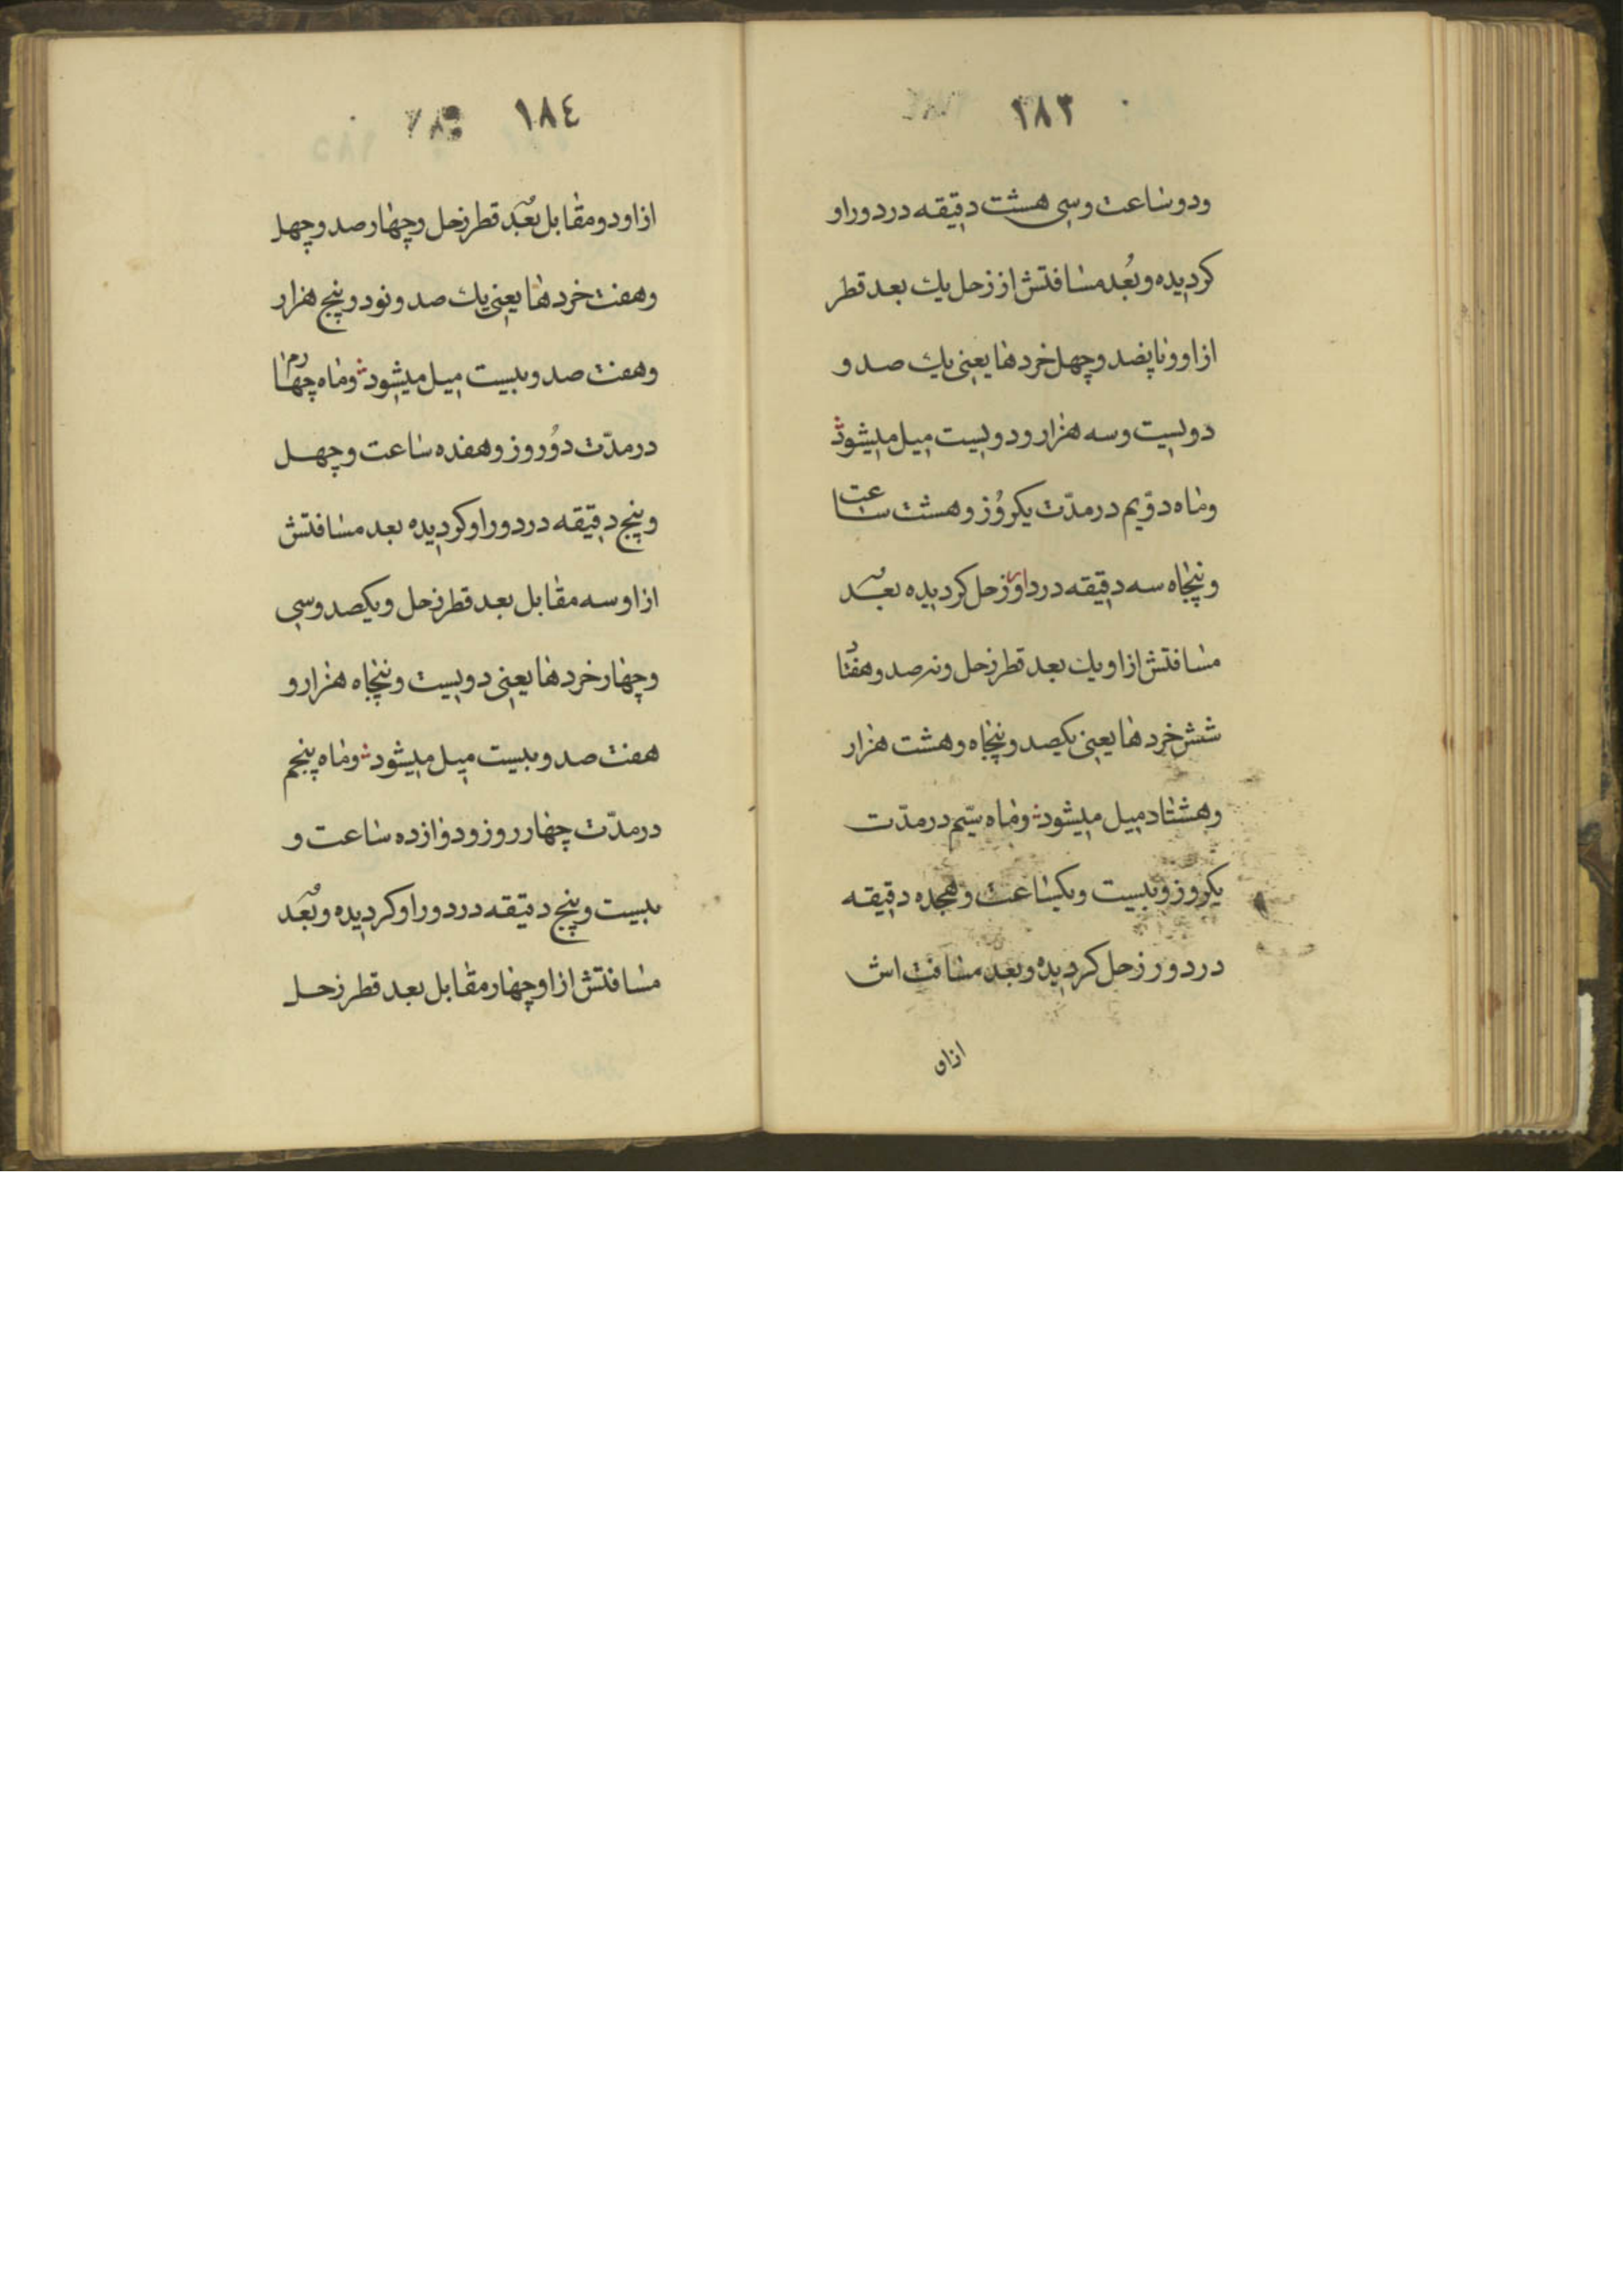 ١٨٣
ودو ساعت وسی هشت دقیقه در دور او
کردیده و بُعد مسافتش از زحل یك بعد قطر
از او و با پنصد و چهل خردها یعنی یك صد و
دویست وسه هزار و دویست میل میشود
وماه دوّیم در مدّت یکروُز وهشت ساعت
و پنجاه سه دقیقه در داور زحل کردیده بعد
مسافتش از او یك بعد قطر زحل و نه صد و هفتاد
شش خردها یعنی یکصد و پنجاه و هشت هزار
وهشتاد میل میشود وماه سیّم در مدّت
یکروز و بیست ویکساعت و هجده دقیقه
در دور زحل کردیده و بعد مسافت اش
ازاو
١٨٤
از او دو مقابل بُعد قطر زحل و چهار صد و چهل
وهفت خردها یعنی یك صد و نود و پنج هزار
وهفت صد و بیست میل میشود وماه چهارم
در مدّت دوُروز وهفده ساعت و چهل
و پنج دقیقه در دور او کردیده بعد مسافتش
از او سه مقابل بعد قطر زحل و یکصد وسی
و چهار خردها یعنی دویست و پنجاه هزار و
هفت صد و بیست میل میشود وماه پنجم
در مدّت چهار روز و دوازده ساعت و
بیست و پنج دقیقه در دور او کردیده و بُعد
مسافتش از او چهار مقابل بعد قطر زحل